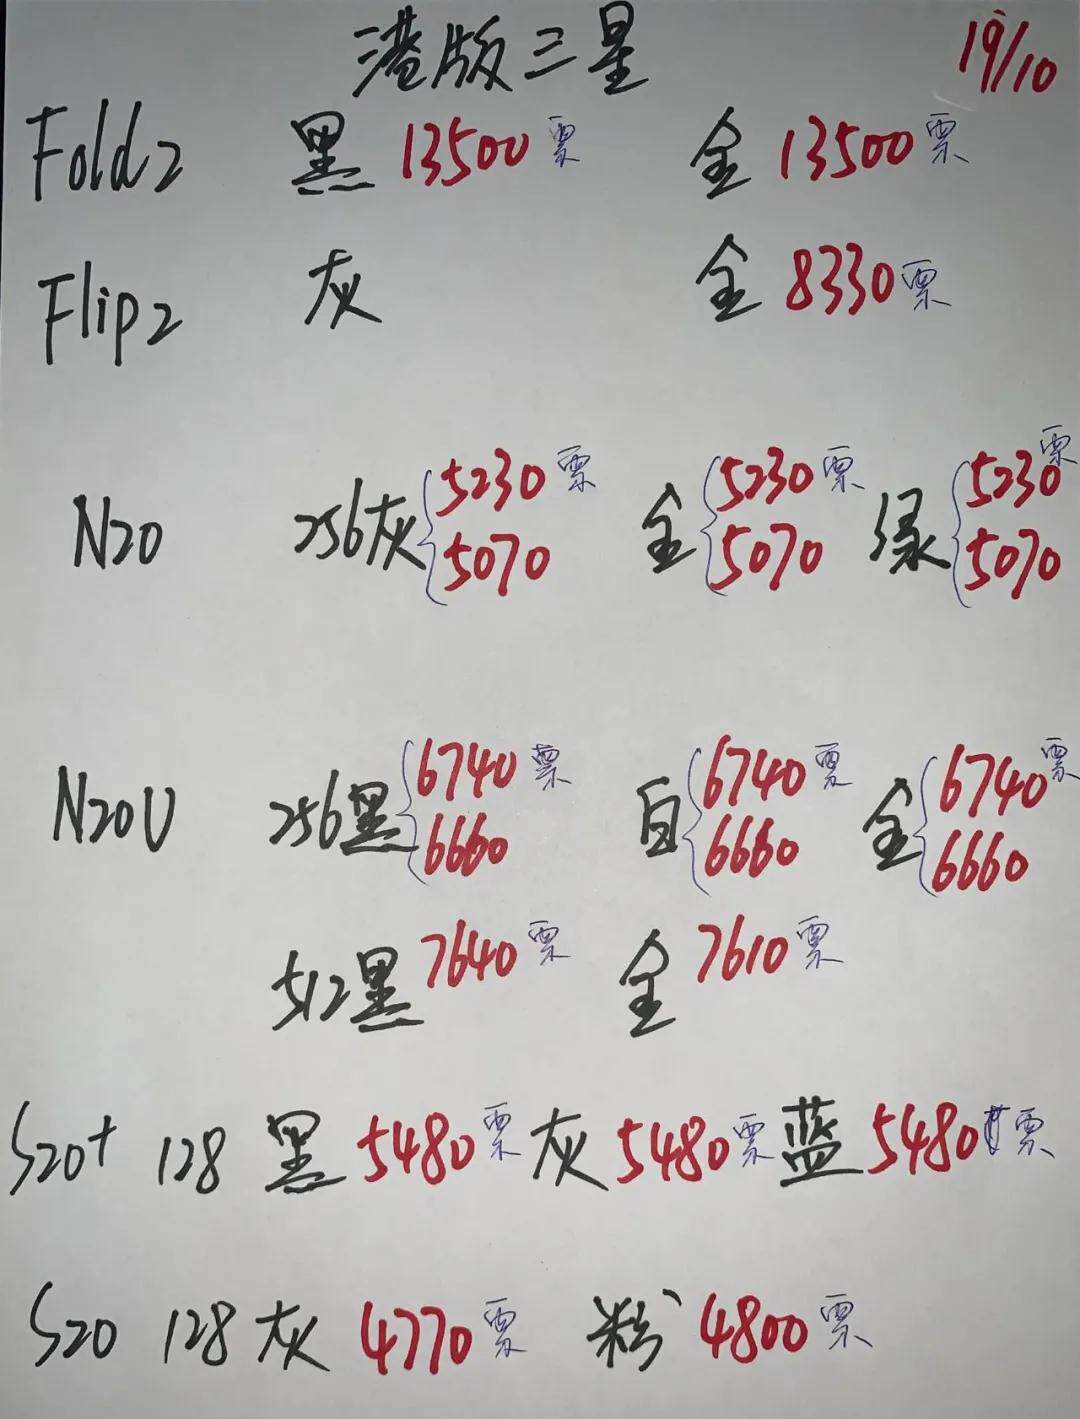 港版三星 19/10
Fold2 黑 13500票 金 13500票
Flip2 灰 金 8330票
N20 256灰 5230票 金 5230票 绿 5230票
5070 5070 5070
N20U 256黑 6740票 白 6740票 金 6740票
6660 6660 6660
512黑 7640票 金 7610票
S20+ 128 黑 5480票 灰 5480票 蓝 5480票
S20 128 灰 4770票 粉 4800票